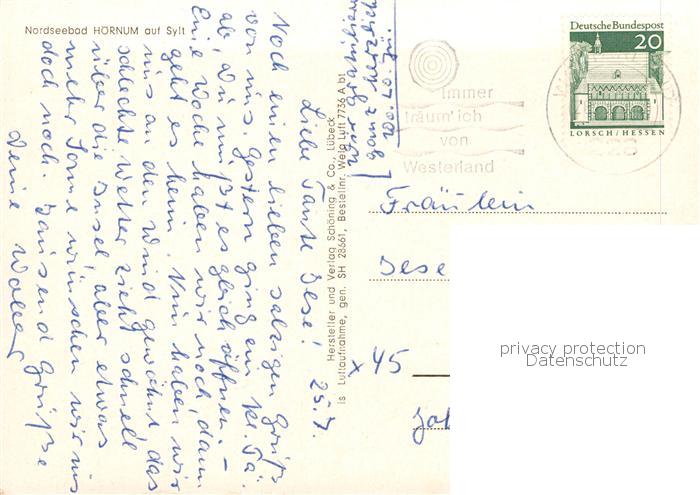 Nordseebad HÖRNUM auf Sylt
25.7.
Liebe Tante Ilse!
Noch einen lieben salzigen Gruß
von uns. Gestern ging ein kl. Pä.
ab, Du mußt es gleich öffnen. –
Eine Woche haben wir noch, dann
geht es heim. Nun haben wir
uns an den Wind gewöhnt das
schlechte Wetter zieht schnell
über die Insel aber etwas
mehr Sonne wünschen wir uns
doch noch. Tausend Grüße
Deine
Hersteller und Verlag Schöning & Co., Lübeck
is Luftaufnahme, gen. SH 28661, Bestellnr. Welg Luft 7736 A bt
ganz
Immer
träum' ich
von
Westerland
Deutsche Bundespost
20
LORSCH/HESSEN
Fräulein
x 45
privacy protection
Datenschutz